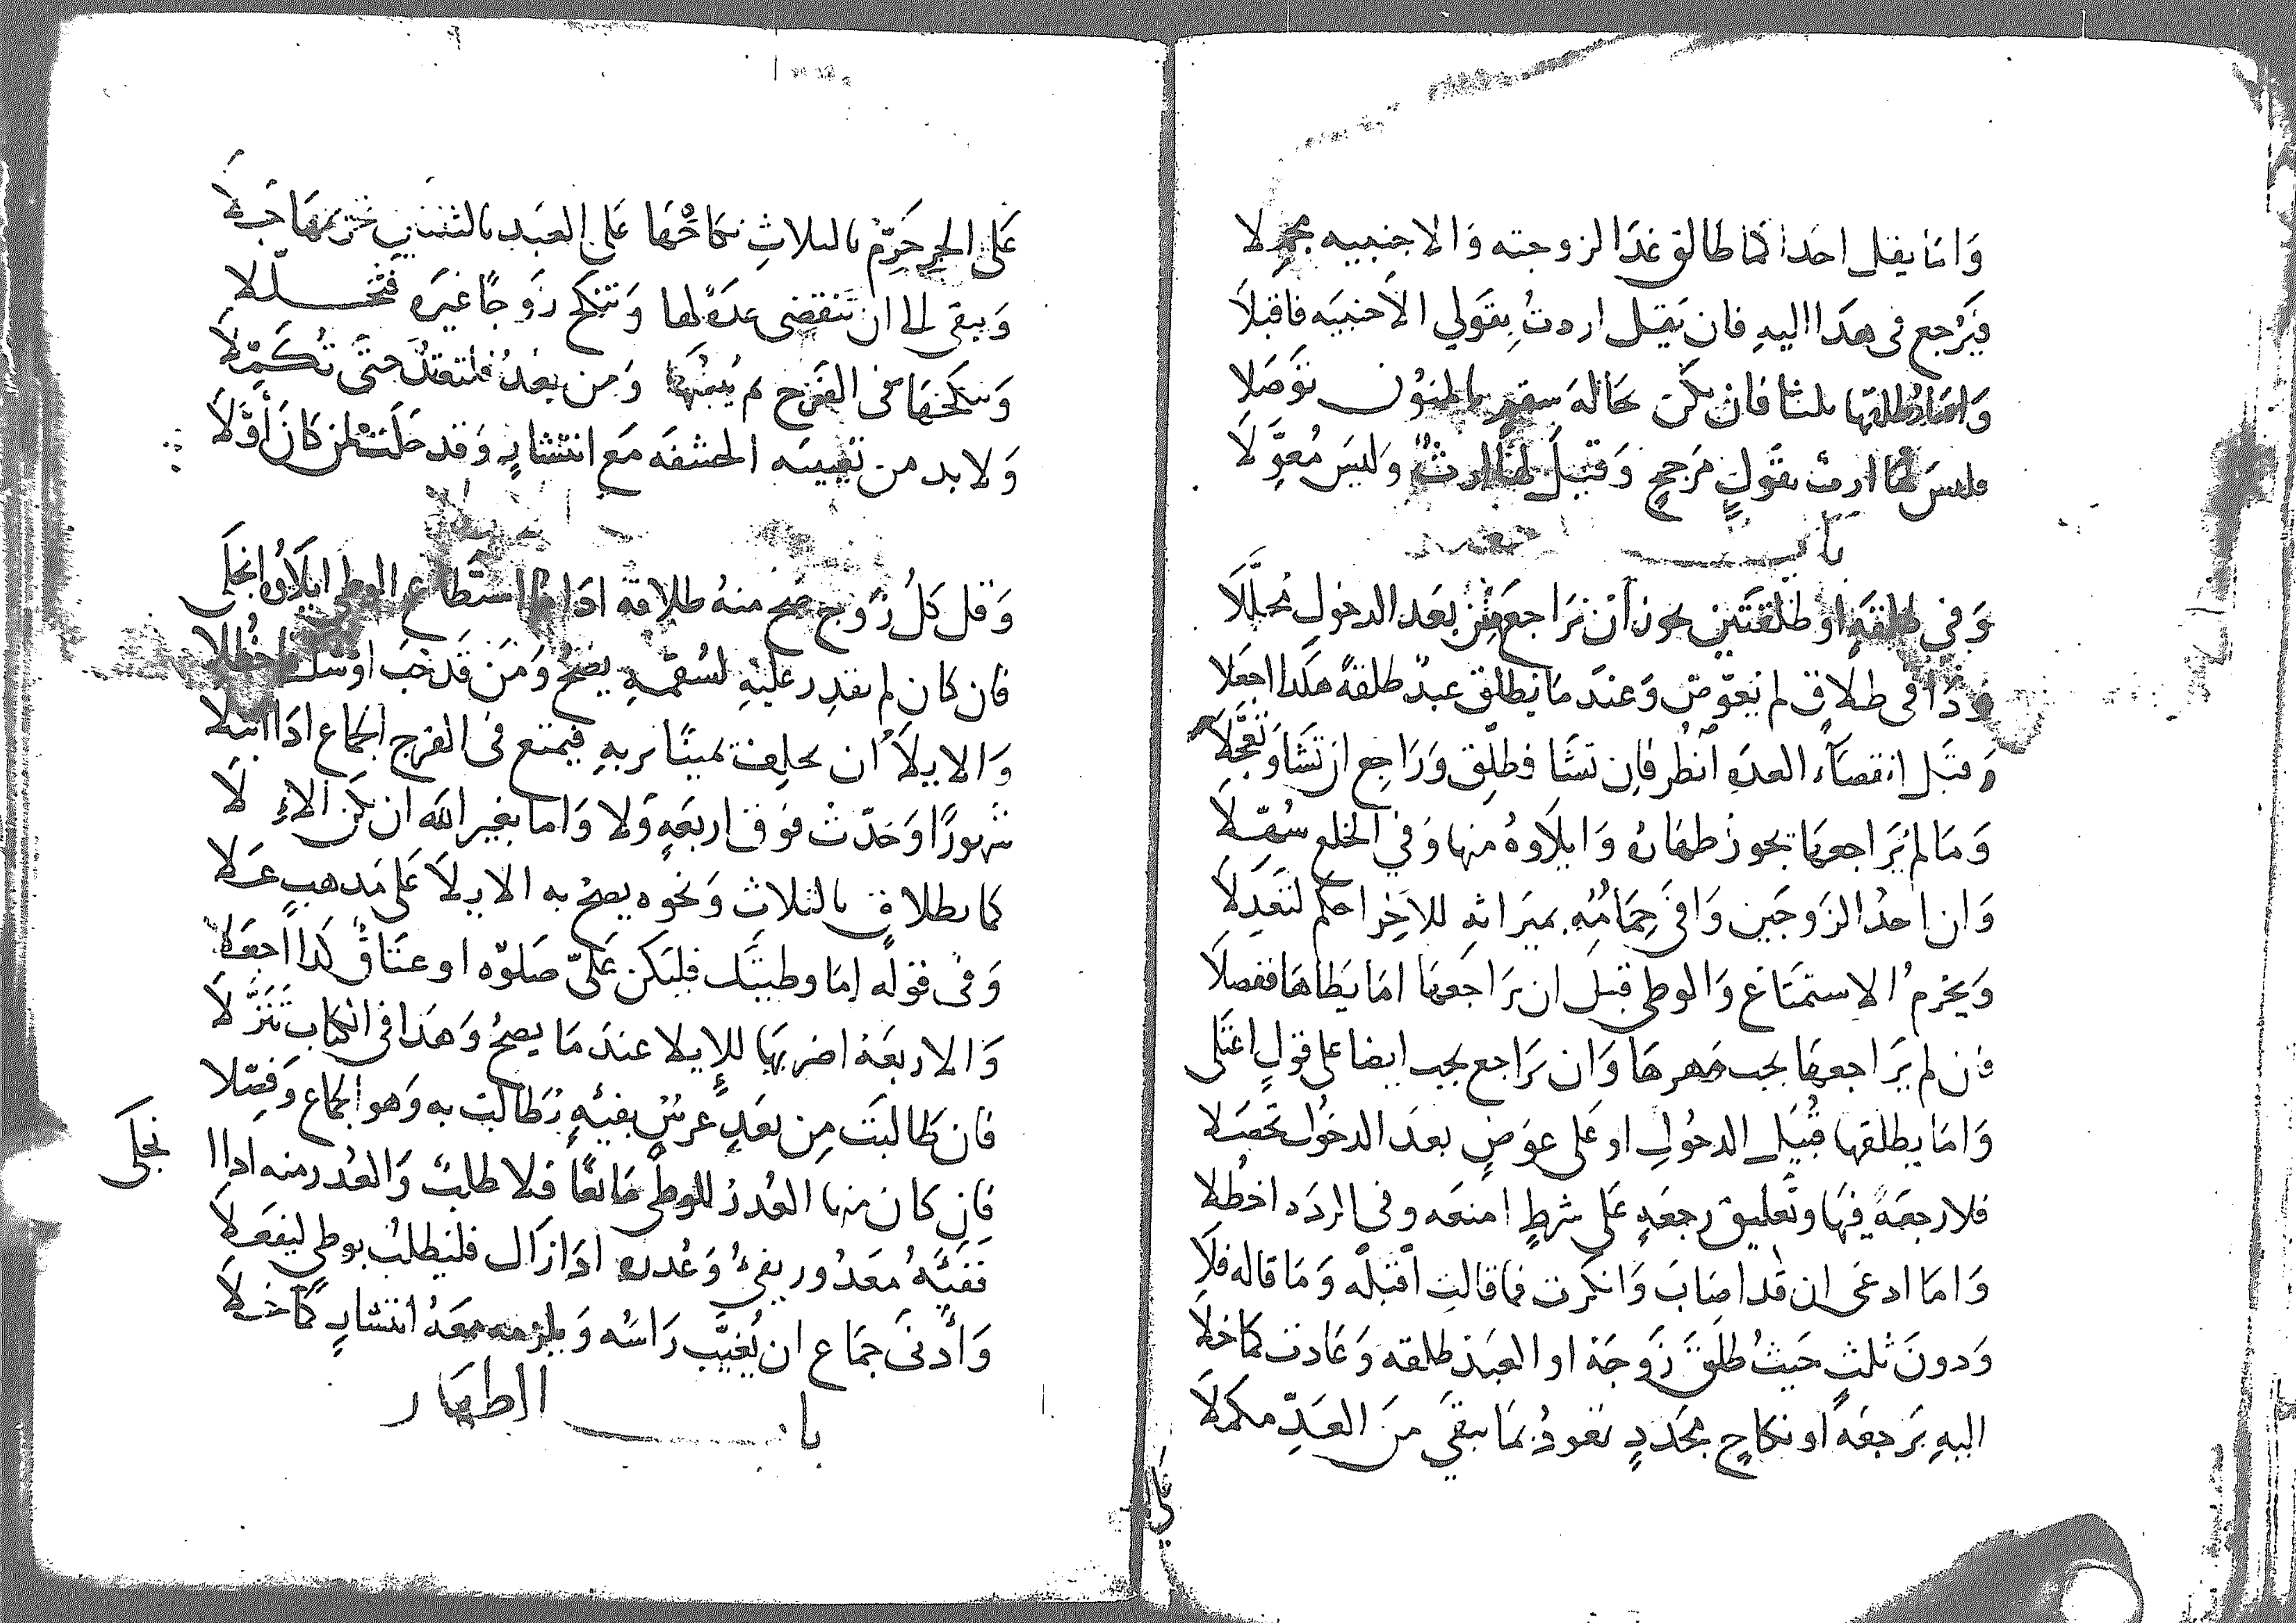 واما يقل احداكما طالق غدا لزوجته والاجنبيه مجملا
فيرجع فى هذا اليه فان يقل اردت بقولي الاجنبيه فاقبلا
واما يطلقها بلثا فان يكن بحاله سقم بالمنون توصلا
فليس لها ارث بقول مرجح وقيل لها ارث وليس معولا
باب
وفي طلقة او طلقتين يجوز أن تراجع من بعد الدخول محللا
وذا فى طلاق لم يعوض وعند ما يطلق عبد طلقة هكذا اجعلا
وقبل انقضاء العده أنظر فان تشا فطلق وراجع ان تشا وتعجلا
وما لم يراجعها يجوز ظهاره وايلاوه منها وفي الخلع سهلا
وان احد الزوجين وافى حمامه بميراثه للاخر احكم لتعدلا
ويحرم الاستمتاع والوطى قبل ان يراجعها اما يطاها ففصلا
فن لم يراجعها يجب مهرها وان يراجع يجب ايضا على قول اعتلى
واما يطلقها قبيل الدخول او على عوض بعد الدخول تحصلا
فلا رجعة فيها وتعليق رجعه على شرط امنعه وفى الرده اخطلا
واما ادعى ان قد اصاب وانكرت فما قالت اقبله وما قاله فلا
ودون ثلث حيث طلق زوجة او العبد طلقه وعادت كما خلا
اليه برجعة او نكاح مجدد تعود بما يبقي من العد مكملا
على الحر حرم بالثلاث نكاحها على العبد بالثنتين تحريمها جلا
ويبقى الى ان تنقضى عدة لها وتنكح زوجا غيره فتحللا
وينكحها فى الفرج ثم يبينها ومن بعد فلتعتد حتى تكملا
ولا بد من تغييبه الحشفه مع انتشار وقد حلت لمن كان أولا
وقل كل زوج صح منه طلاقه اذا ما استطاع الوطى ايلاوه انجلى
فان كان لم يقدر عليه لسقمه يصح ومن قد جب اوشل اخطلا
والايلاء ان يحلف يمينا بربه فيمتنع فى الفرج الجماع اذا ابتلا
شهورا وحدت فوق اربعه ولا واما بغير الله ان يكن الاء لا
كما بطلاق بالثلاث ونحوه يصح به الايلا على مذهب علا
وفى قوله اما وطيتك فليكن على صلوه او عتاق كذا اجعلا
والاربعة اضربها للإيلا عند ما يصح وهذا فى الكتاب تنزلا
فان طالبت من بعد عرس بفيئه فطالبت به وهو الجماع وفصلا
فان كان منها العذر للوطى مانعا فلا طالبت والعذر منه اذا ا
نجلى
تفيئه معذور يفئ وعذره اذا زال فليطلب بوطي ليفعلا
وأدنى جماع ان يغيب راسه ويلزمه معه انتشار كما خلا
باب الظهار